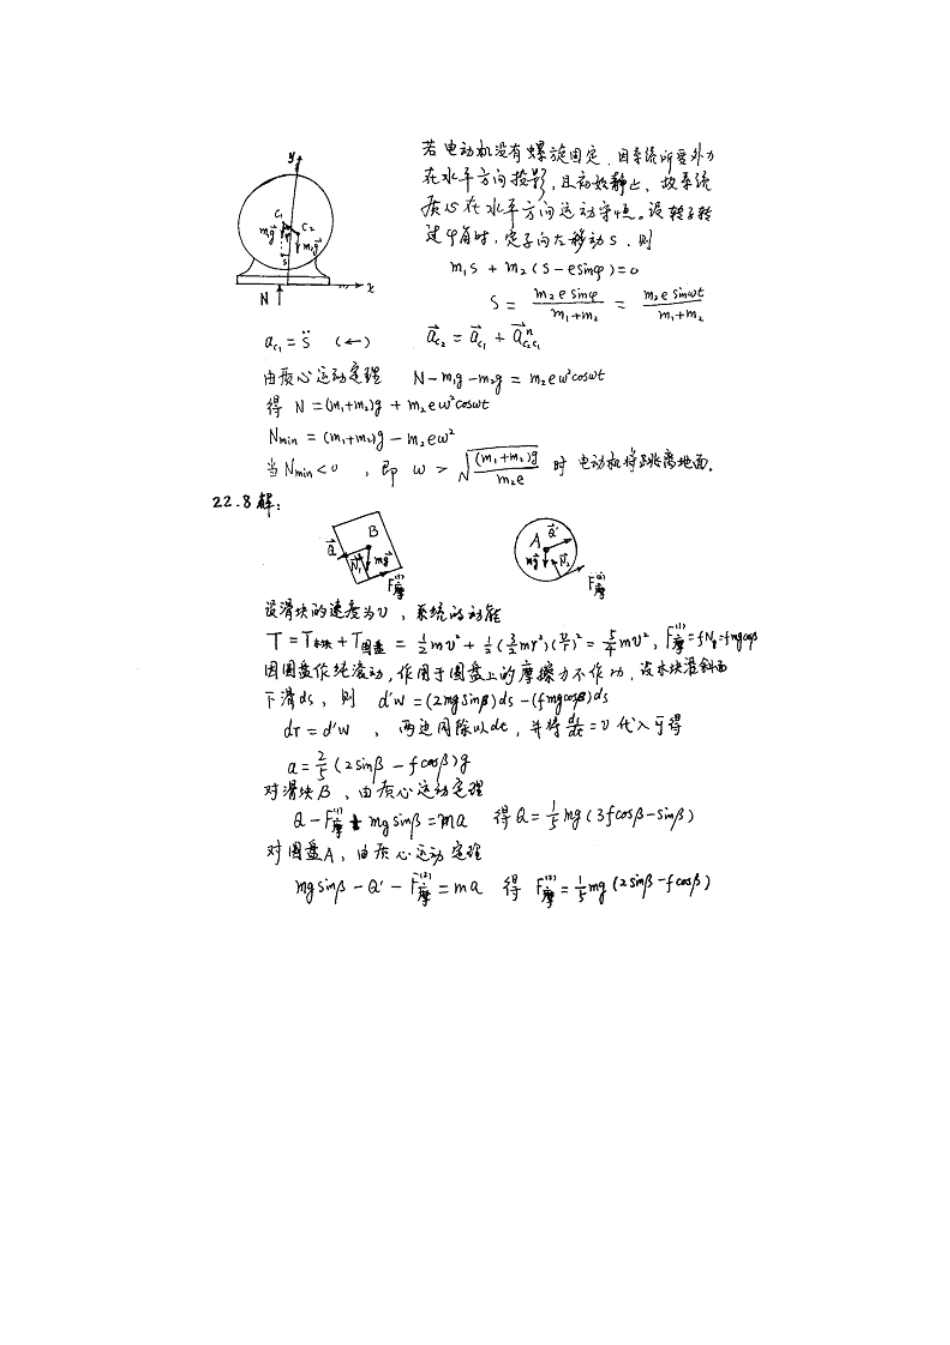 若电动机没有螺旋固定,因系统所受外力
在水平方向投影,且初始静止、故系统
质心在水平方向运动守恒。设转子转
过φ角时,定子向左移动s,则
y
C₁
C₂
m₁g⃗
m₂g⃗
s
N
x
m₁s + m₂(s-esinφ)=0
S = m₂e sinφ/(m₁+m₂) = m₂e sinωt/(m₁+m₂)
a_c₁ = s̈ (←) a⃗_c₂ = a⃗_c₁ + a⃗ⁿ_c₂c₁
由质心运动定理 N-m₁g-m₂g = m₂eω²cosωt
得 N =(m₁+m₂)g + m₂eω²cosωt
Nmin = (m₁+m₂)g - m₂eω²
当 Nmin<0 ,即 ω > √((m₁+m₂)g/(m₂e)) 时 电动机将跳离地面.
22.8解:
B
Q⃗
N⃗₁
mg⃗
F摩⁽¹⁾
A
Q⃗'
mg⃗
N⃗₂
F摩⁽²⁾
设滑块的速度为v,系统的动能
T = T木块 + T圆盘 = ½mv² + ½(3/2 mr²)(v/r)² = 5/4 mv², F摩⁽¹⁾=fN₁=fmgcosβ
因圆盘作纯滚动,作用于圆盘上的摩擦力不作功,设木块沿斜面
下滑ds,则 d'w =(2mgsinβ)ds -(fmgcosβ)ds
dT = d'w , 两边同除以dt,并将 ds/dt = v 代入可得
a = 2/5 (2sinβ - fcosβ)g
对滑块B,由质心运动定理
Q - F摩⁽¹⁾ + mgsinβ = ma 得 Q = 1/5 mg(3fcosβ-sinβ)
对圆盘A,由质心运动定理
mgsinβ - Q' - F摩⁽²⁾ = ma 得 F摩⁽²⁾ = 1/5 mg(2sinβ-fcosβ)